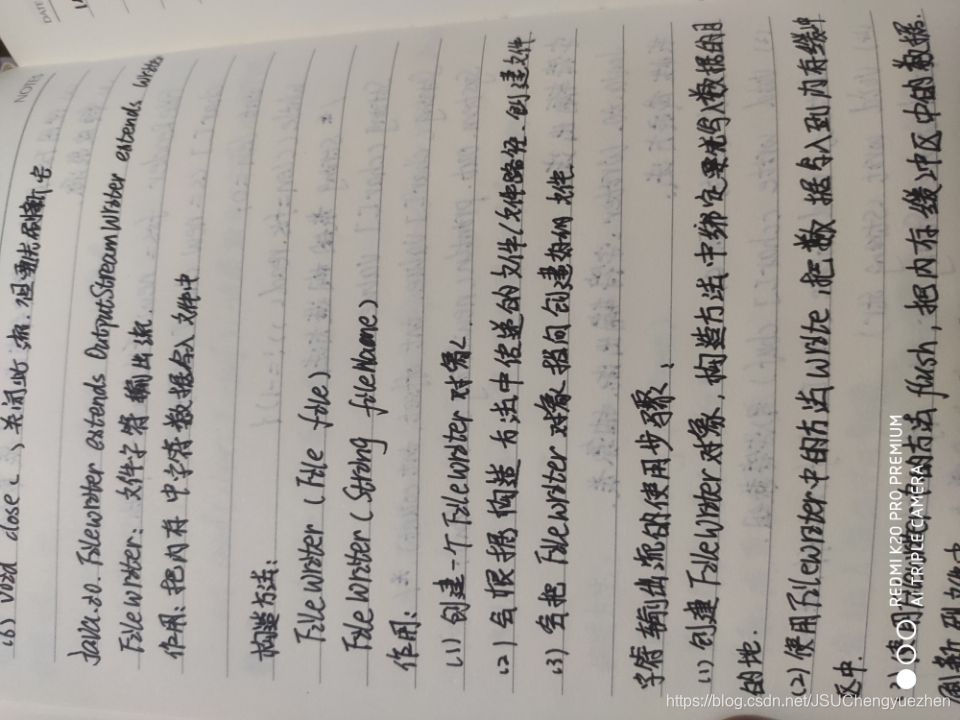 NOTES
DATE
(6) void close() 关闭此流,但要先刷新它
Java.io.FileWriter extends OutputStreamWriter extends Writer
FileWriter: 文件字符输出流.
作用: 把内存中字符数据写入文件中
构造方法:
FileWriter (File file)
FileWriter (String fileName)
作用:
(1) 创建一个FileWriter对象
(2) 会根据构造方法中传递的文件/文件路径,创建文件
(3) 会把FileWriter对象指向创建好的文件.
字符输出流的使用步骤:
(1) 创建FileWriter对象,构造方法中绑定要写入数据的目
的地.
(2) 使用FileWriter中的方法write,把数据写入到内存缓冲
区中.
(3) 使用 中的方法flush,把内存缓冲区中的数据,
刷新到文件中
REDMI K20 PRO PREMIUM
AI TRIPLE CAMERA
https://blog.csdn.net/JSUChengyuezhen